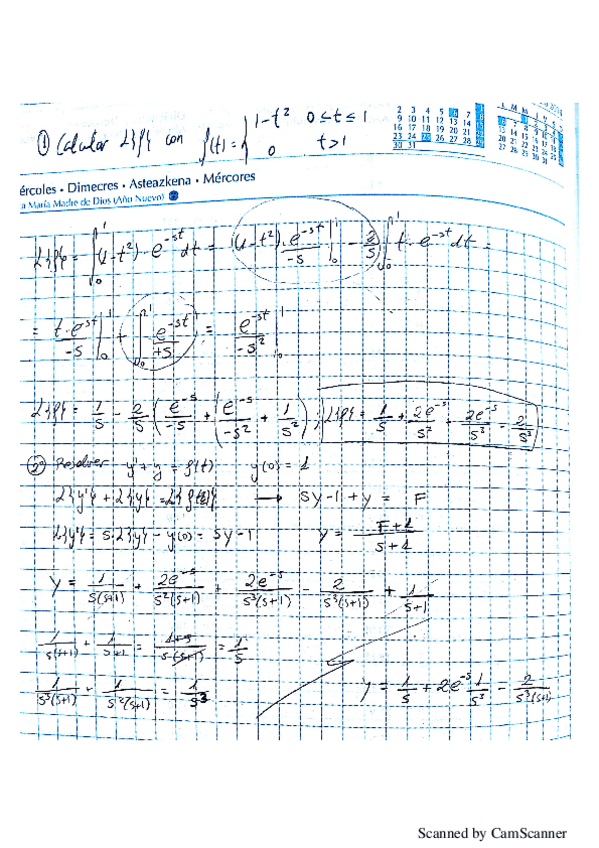 ① Calcular L{f} con f(t) = { 1-t² 0≤t≤1
0 t>1
ércoles • Dimecres • Asteazkena • Mércores
a María Madre de Dios (Año Nuevo)
L{f} = ∫₀¹ (1-t²)·e^{-st} dt = (1-t²)·e^{-st}/-s |₀¹ - 2/s ∫₀¹ t·e^{-st} dt =
= t·e^{-st}/-s |₀¹ + ∫₀¹ e^{-st}/+s = e^{-st}/-s² |₀¹
L{f} = 1/s - 2/s (e^{-s}/-s + (e^{-s}/-s² + 1/s²) ; L{f} = 1/s + 2e^{-s}/s² + 2e^{-s}/s³ - 2/s³
② Resolver y'+y = f(t) y(0) = 1
L{y'} + L{y} = L{f(t)} → sY-1+Y = F
L{y'} = s·L{y} - y(0) = sY-1 Y = F+1/s+1
Y = 1/s(s+1) + 2e^{-s}/s²(s+1) + 2e^{-s}/s³(s+1) - 2/s³(s+1) + 1/s+1
1/s(s+1) + 1/s+1 = 1+s/s(s+1) = 1/s
1/s³(s+1) + 1/s²(s+1) = 1/s³ Y = 1/s + 2e^{-s} 1/s³ - 2/s³(s+1)
Scanned by CamScanner